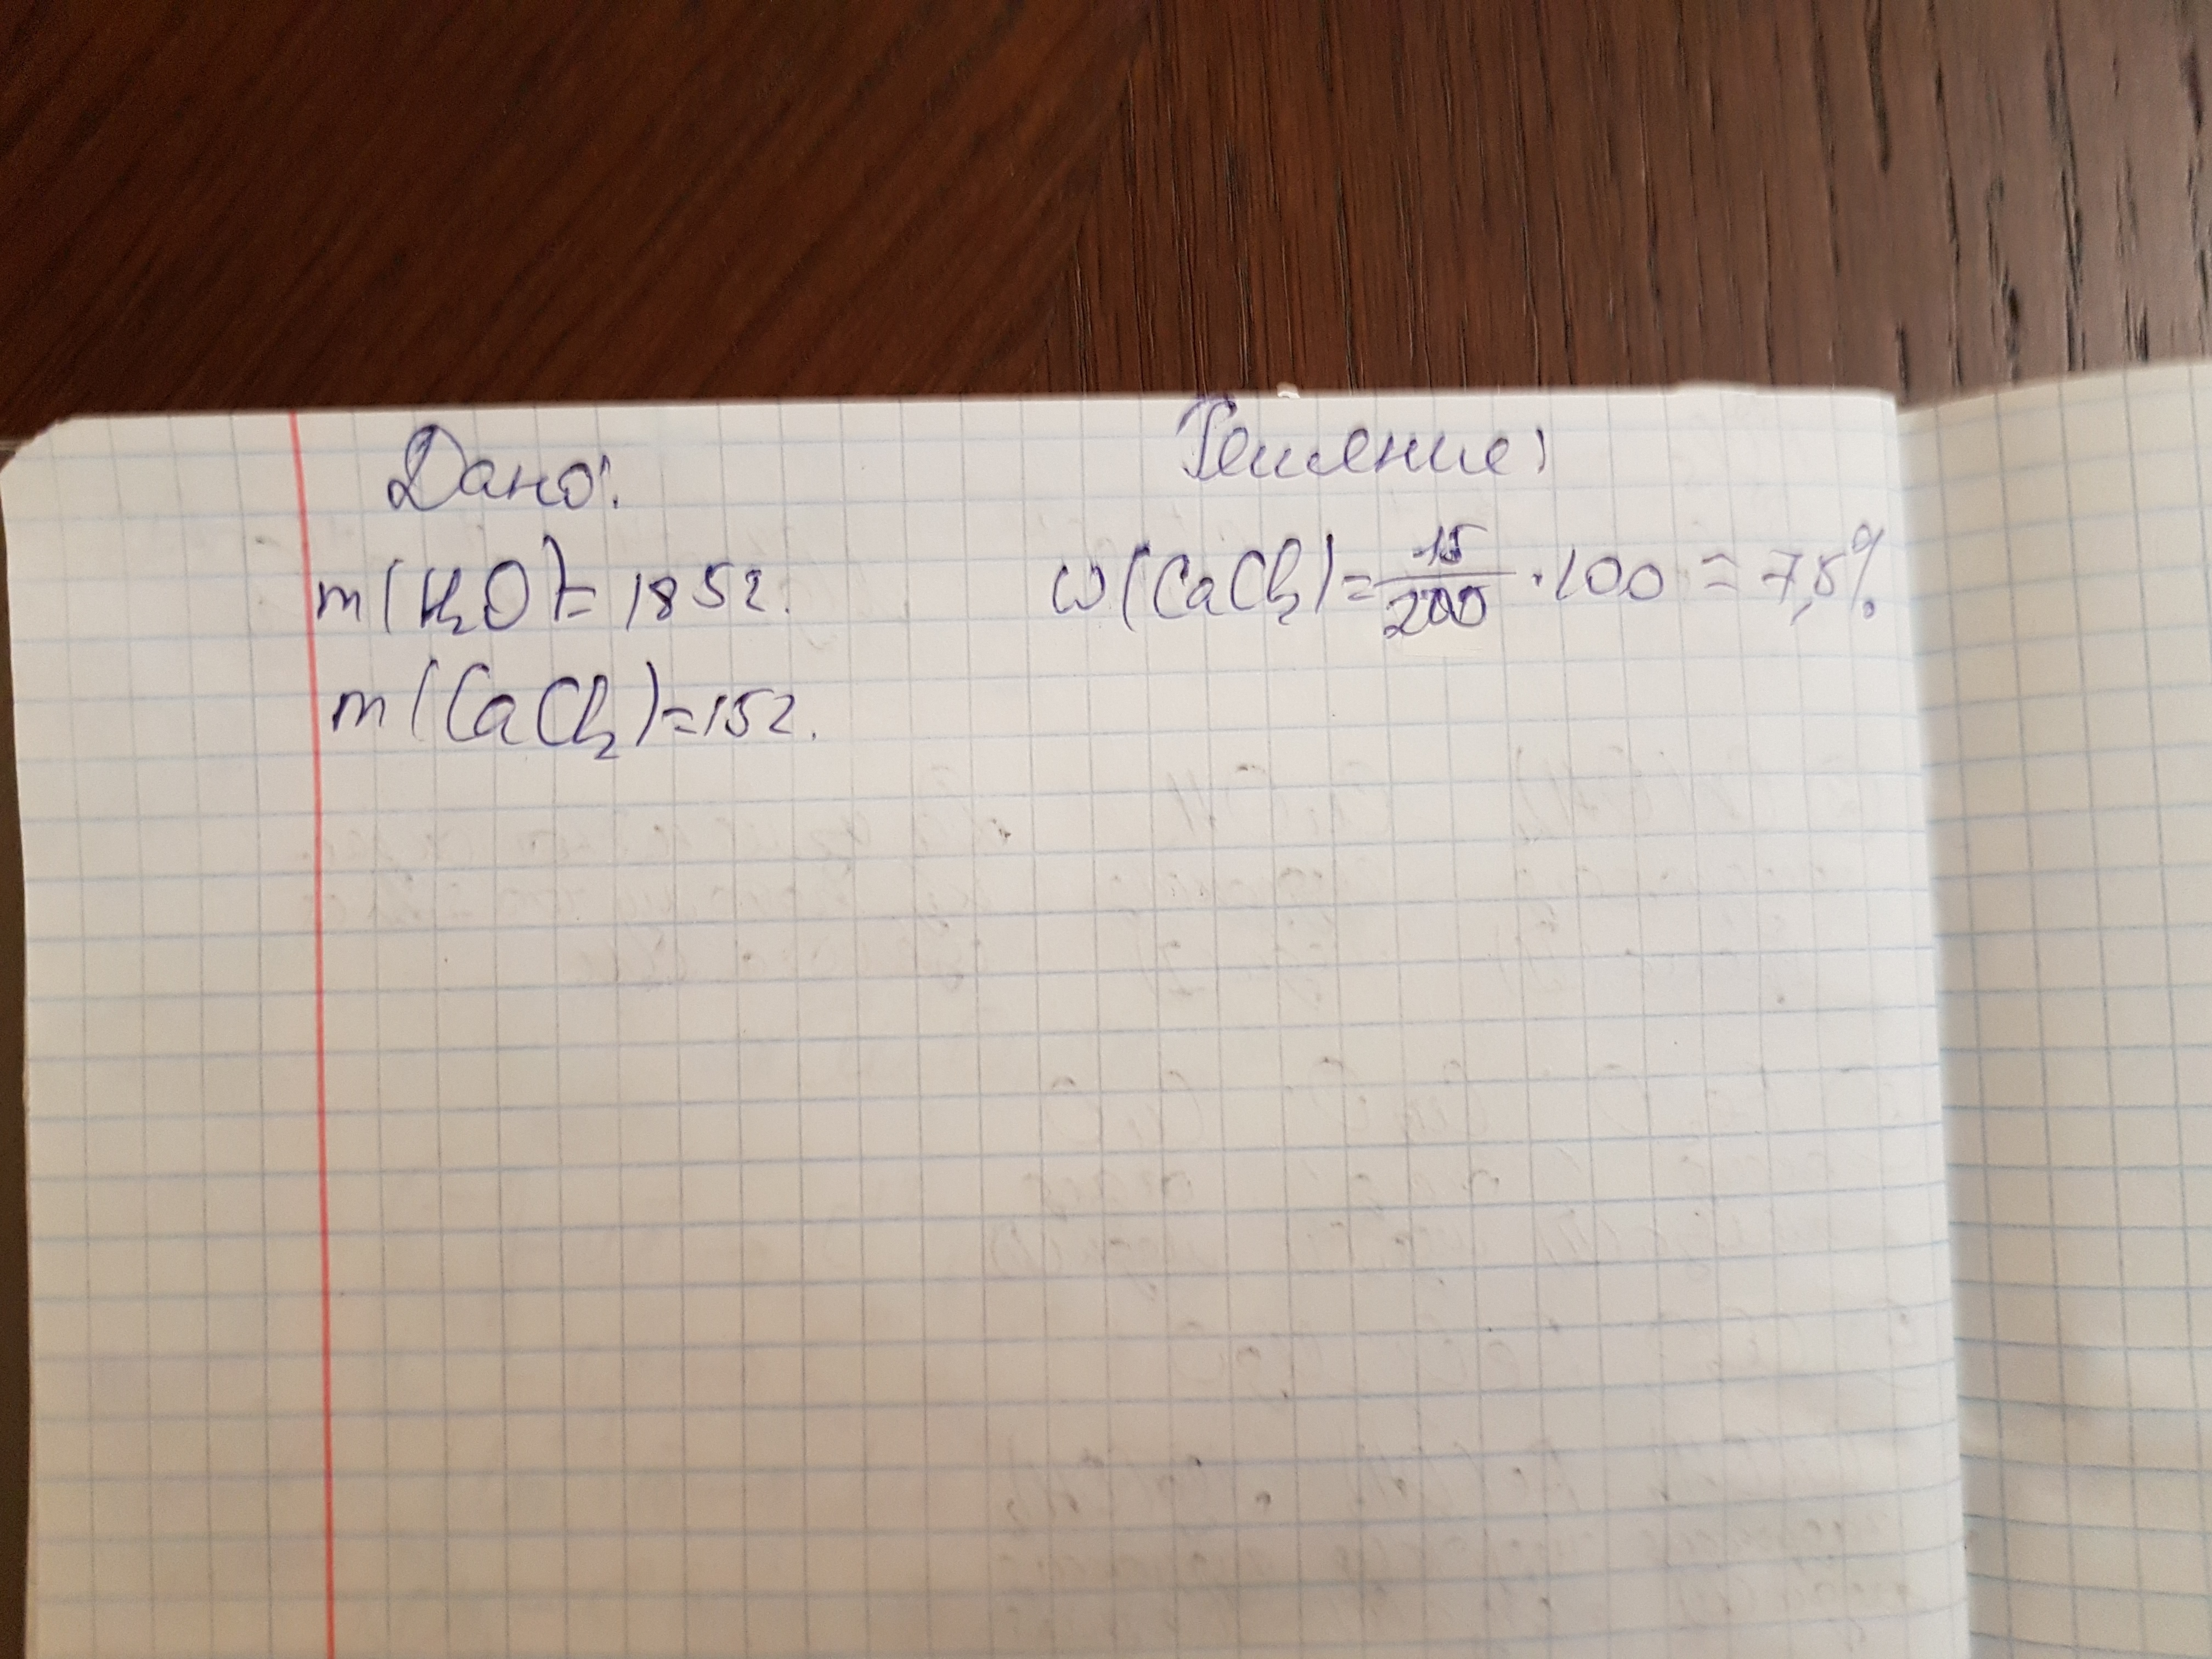 Дано:
m(H₂O)=185г.
m(CaCl₂)=15г.
Решение:
ω(CaCl₂)=15/200·100=7,5%